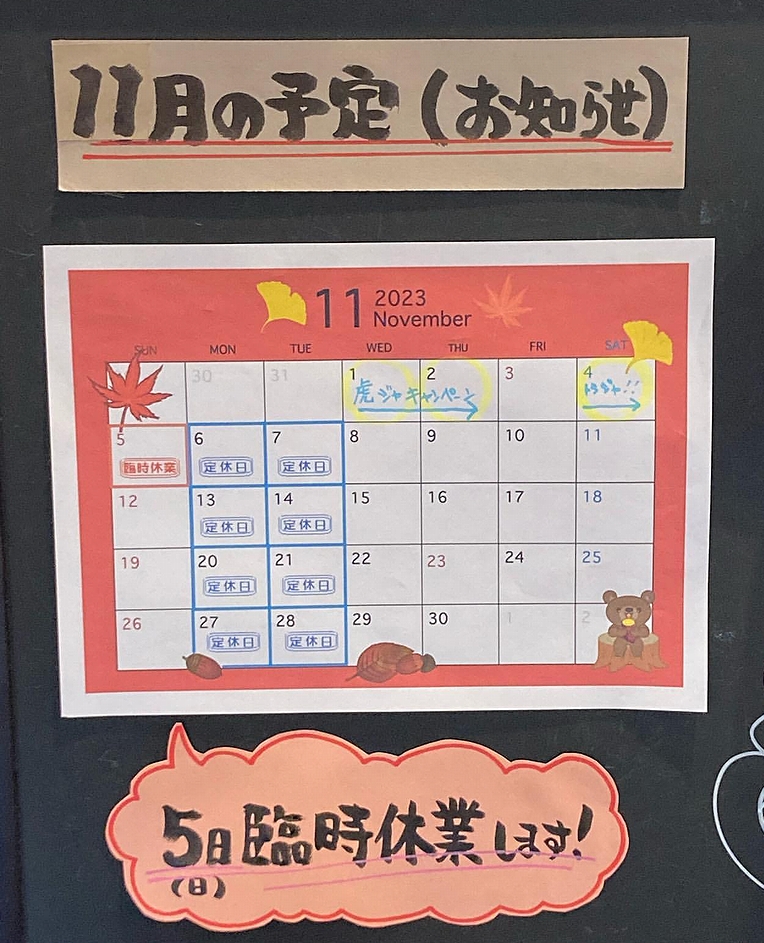 11月の予定(お知らせ)
11 2023 November
SUN MON TUE WED THU FRI SAT
30 31 1 2 3 4
虎ジャキャンペーン トラジャ!!
5 6 7 8 9 10 11
臨時休業 定休日 定休日
12 13 14 15 16 17 18
定休日 定休日
19 20 21 22 23 24 25
定休日 定休日
26 27 28 29 30 1 2
定休日 定休日
5日臨時休業します!
(日)